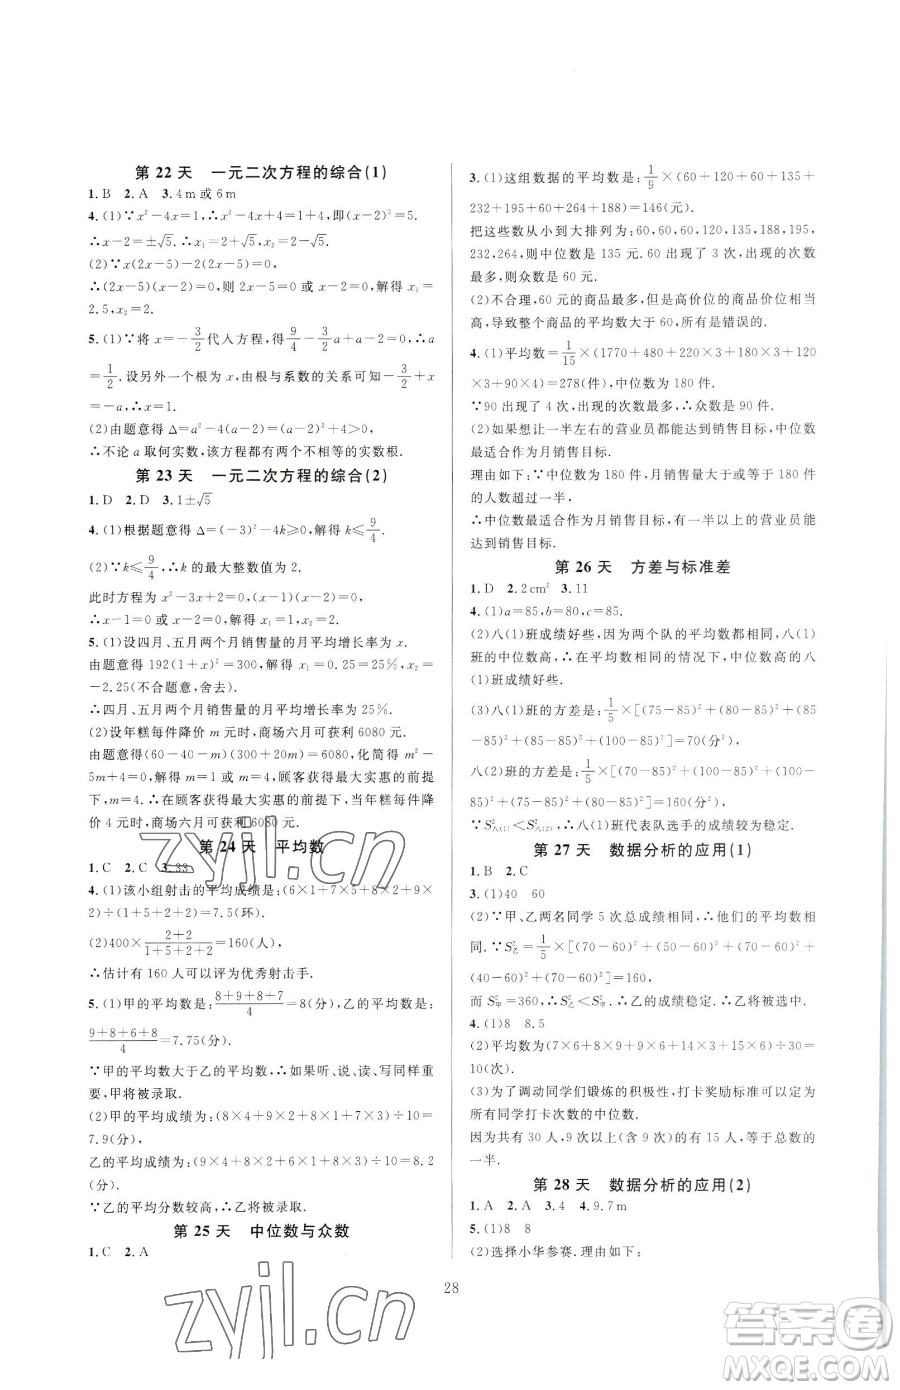 第 22 天　一元二次方程的综合(1)
1. B　2. A　3. 4 m 或 6 m
4. (1)∵x²－4x＝1,∴x²－4x＋4＝1＋4,即(x－2)²＝5.
∴x－2＝±√5.∴x₁＝2＋√5,x₂＝2－√5.
(2)∵x(2x－5)－2(2x－5)＝0,
∴(2x－5)(x－2)＝0,则 2x－5＝0 或 x－2＝0,解得 x₁＝
2.5,x₂＝2.
5. (1)∵将 x＝－3/2代入方程,得9/4－3/2a＋a－2＝0,∴a
＝1/2.设另外一个根为 x,由根与系数的关系可知－3/2＋x
＝－a,∴x＝1.
(2)由题意得 Δ＝a²－4(a－2)＝(a－2)²＋4＞0,
∴不论 a 取何实数,该方程都有两个不相等的实数根.
第 23 天　一元二次方程的综合(2)
1. D　2. D　3. 1±√5
4. (1)根据题意得 Δ＝(－3)²－4k≥0,解得 k≤9/4.
(2)∵k≤9/4,∴k 的最大整数值为 2.
此时方程为 x²－3x＋2＝0,∴(x－1)(x－2)＝0.
∴x－1＝0 或 x－2＝0.解得 x₁＝1,x₂＝2.
5. (1)设四月、五月两个月销售量的月平均增长率为 x.
由题意得 192(1＋x)²＝300,解得 x₁＝0.25＝25%,x₂＝
－2.25(不合题意,舍去).
∴四月、五月两个月销售量的月平均增长率为 25%.
(2)设年糕每件降价 m 元时,商场六月可获利 6080 元.
由题意得(60－40－m)(300＋20m)＝6080,化简得 m²－
5m＋4＝0,解得 m＝1 或 m＝4,顾客获得最大实惠的前提
下,m＝4.∴在顾客获得最大实惠的前提下,当年糕每件降
价 4 元时,商场六月可获利 6080 元.
第 24 天　平均数
1. C　2. C　3. 33
4. (1)该小组射击的平均成绩是:(6×1＋7×5＋8×2＋9×
2)÷(1＋5＋2＋2)＝7.5(环).
(2)400×(2＋2)/(1＋5＋2＋2)＝160(人),
∴估计有 160 人可以评为优秀射击手.
5. (1)甲的平均数是:(8＋9＋8＋7)/4＝8(分),乙的平均数是:
(9＋8＋6＋8)/4＝7.75(分).
∵甲的平均数大于乙的平均数,∴如果听、说、读、写同样重
要,甲将被录取.
(2)甲的平均成绩为:(8×4＋9×2＋8×1＋7×3)÷10＝
7.9(分),
乙的平均成绩为:(9×4＋8×2＋6×1＋8×3)÷10＝8.2
(分).
∵乙的平均分数较高,∴乙将被录取.
第 25 天　中位数与众数
1. C　2. A
3. (1)这组数据的平均数是:1/9×(60＋120＋60＋135＋
232＋195＋60＋264＋188)＝146(元).
把这些数从小到大排列为:60,60,60,120,135,188,195,
232,264,则中位数是 135 元.60 出现了 3 次,出现的次数
最多,则众数是 60 元.
(2)不合理,60 元的商品最多,但是高价位的商品价位相对
高,导致整个商品的平均数大于 60,所有是错误的.
4. (1)平均数＝1/15×(1770＋480＋220×3＋180×3＋120
×3＋90×4)＝278(件),中位数为 180 件.
∵90 出现了 4 次,出现的次数最多,∴众数是 90 件.
(2)如果想让一半左右的营业员都能达到销售目标,中位数
最适合作为月销售目标.
理由如下:∵中位数为 180 件,月销售量大于和等于 180 件
的人数超过一半,
∴中位数最适合作为月销售目标,有一半以上的营业员能
达到销售目标.
第 26 天　方差与标准差
1. D　2. 2 cm²　3. 11
4. (1)a＝85,b＝80,c＝85.
(2)八(1)班成绩好些,因为两个队的平均数都相同,八(1)
班的中位数高,∴在平均数相同的情况下,中位数高的八
(1)班成绩好些.
(3)八(1)班的方差是:1/5×[(75－85)²＋(80－85)²＋(85
－85)²＋(85－85)²＋(100－85)²]＝70(分²),
八(2)班的方差是:1/5×[(70－85)²＋(100－85)²＋
(100－85)²＋(75－85)²＋(80－85)²]＝160(分²).
∵S²八(1)＜S²八(2),∴八(1)班代表队选手的成绩较为稳定.
第 27 天　数据分析的应用(1)
1. B　2. C
3. (1)40　60
(2)∵甲、乙两名同学 5 次总成绩相同,∴他们的平均数相
同.∵S²乙＝1/5×[(70－60)²＋(50－60)²＋(70－60)²＋
(40－60)²＋(70－60)²]＝160.
而 S²甲＝360,∴S²乙＜S²甲.∴乙的成绩稳定.∴乙将被选中.
4. (1)8　8.5
(2)平均数为(7×6＋8×9＋9×6＋14×3＋15×6)÷30＝
10(次).
(3)为了调动同学们锻炼的积极性,打卡奖励标准可以定为
所有同学打卡次数的中位数.
因为共有 30 人,9 次以上(含 9 次)的有 15 人,等于总数的
一半.
第 28 天　数据分析的应用(2)
1. A　2. A　3. 4　4. 9.7 m
5. (1)8　8
(2)选择小华参赛.理由如下:
28
zyjl.cn
zyjl.cn
答案卷
MXQE.COM